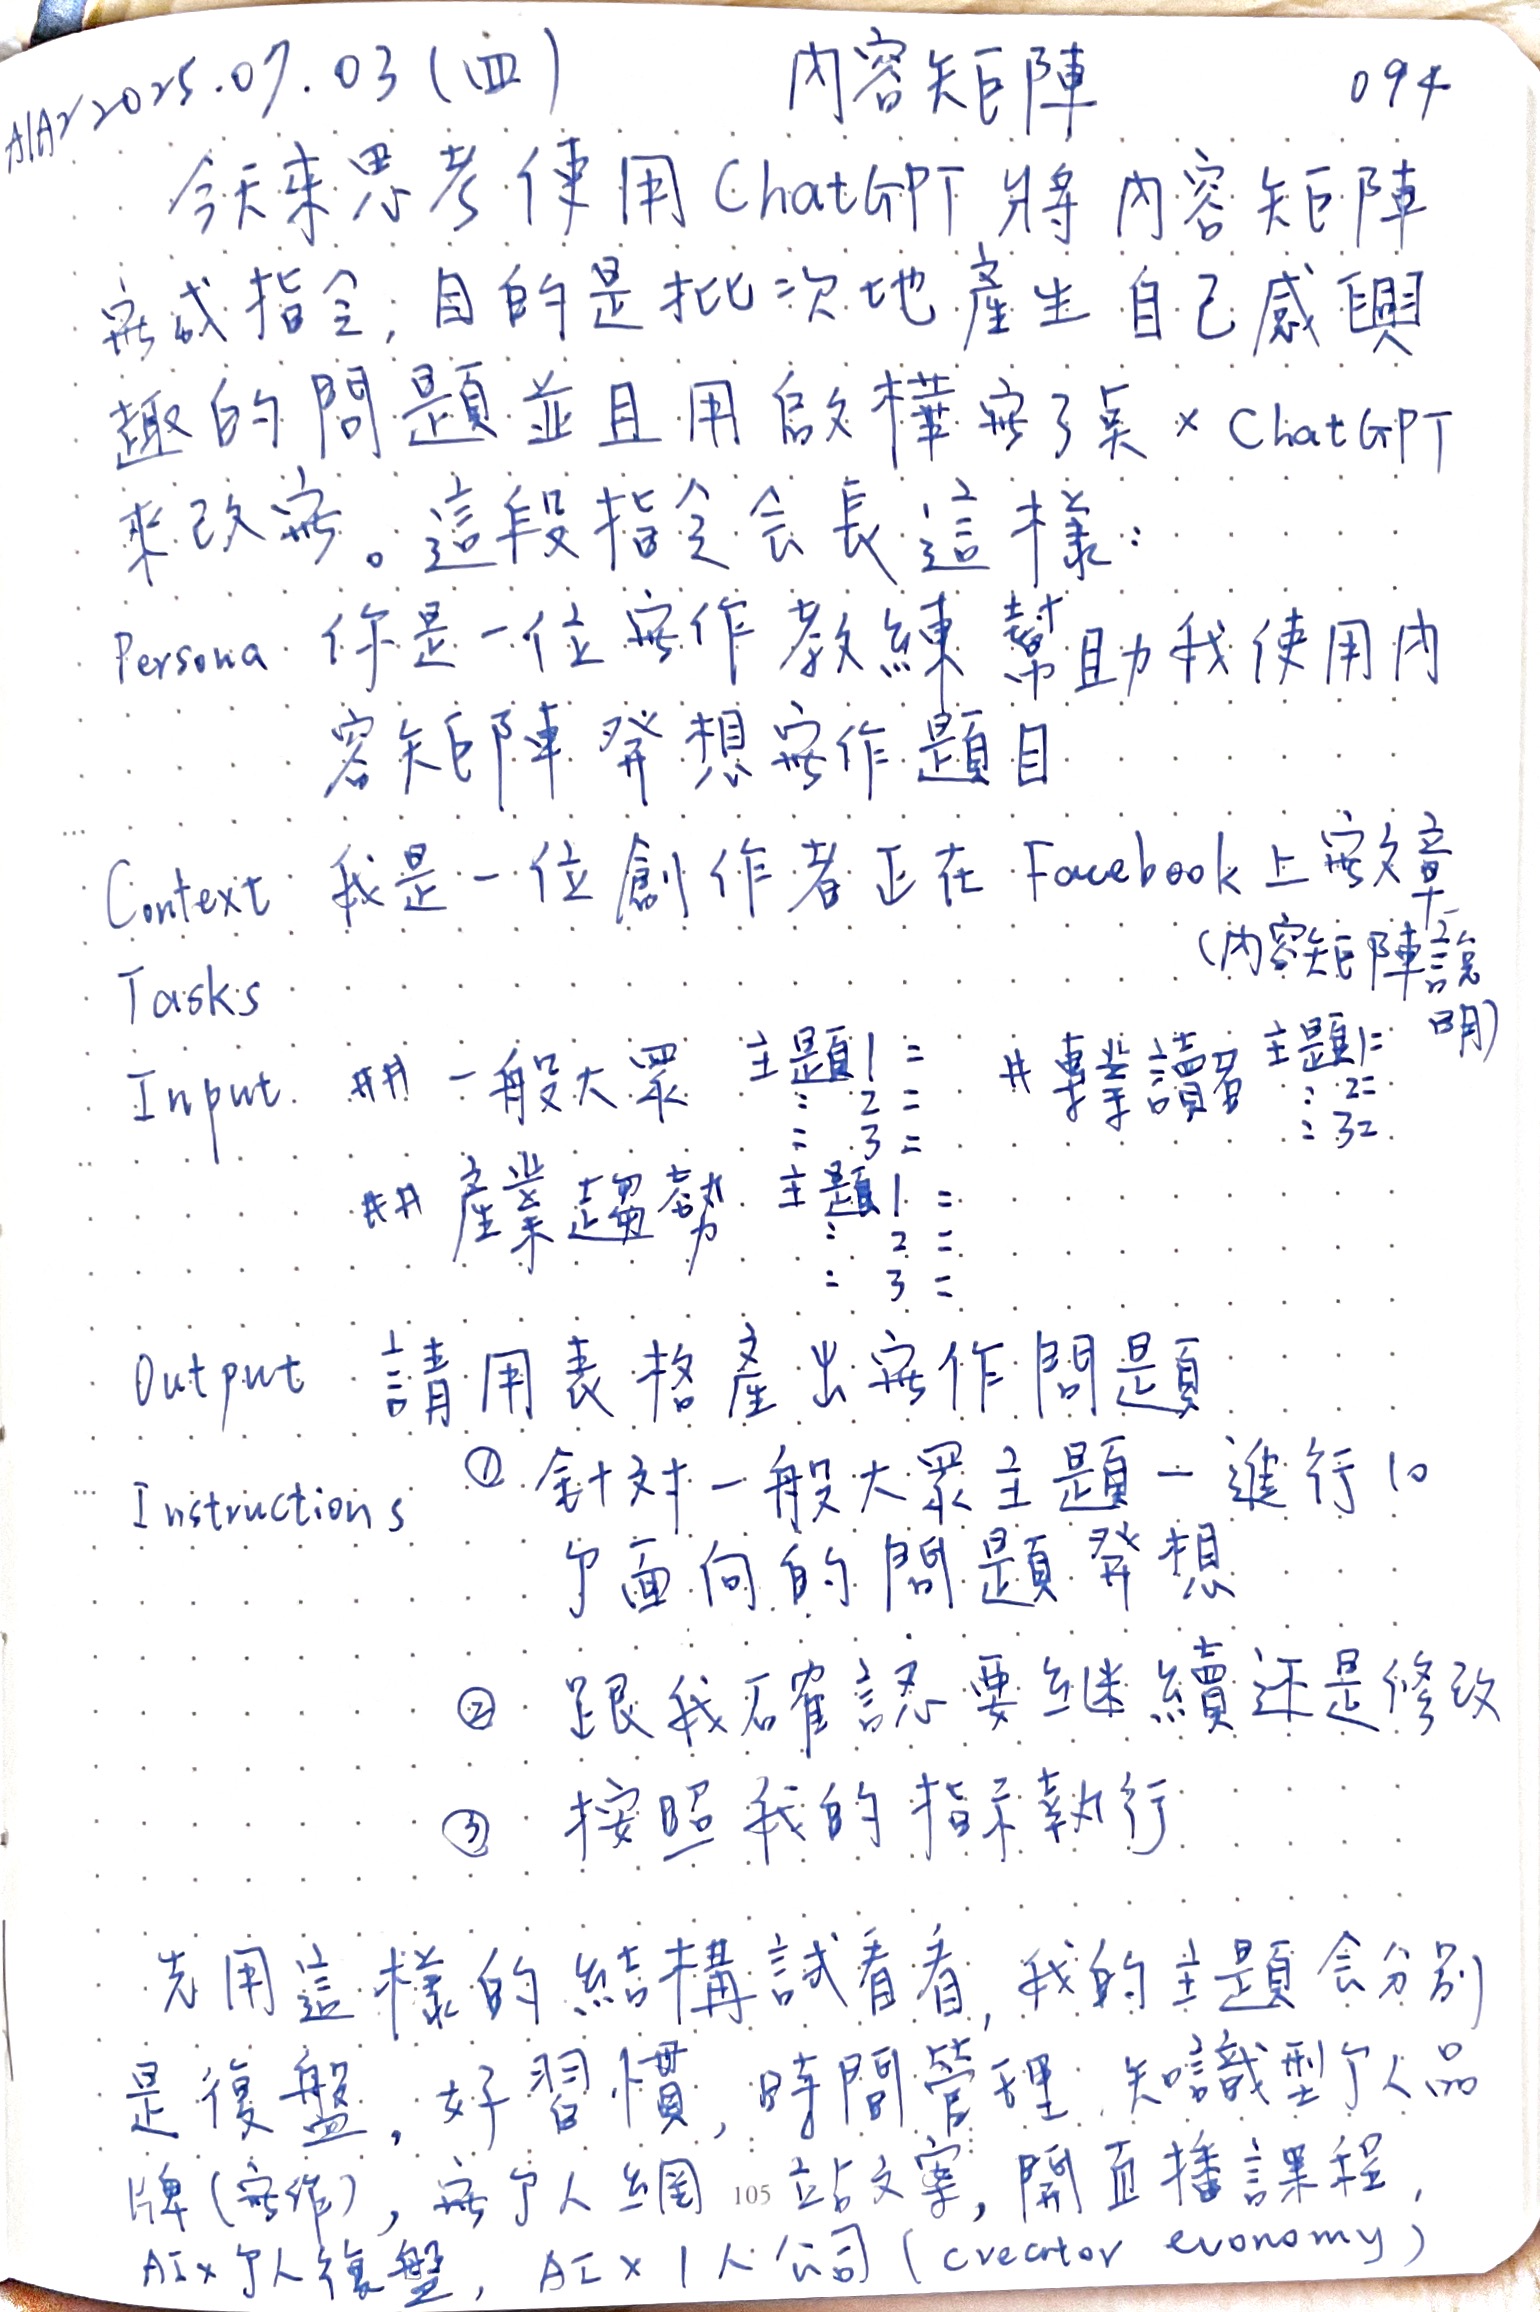 A1A2 2025.07.03(四) 內容矩陣 094
今天來思考使用ChatGPT將內容矩陣
寫成指令,目的是批次地產生自己感興
趣的問題並且用啟樺寫了吳×ChatGPT
來改寫。這段指令会長這樣:
Persona 你是一位寫作教練幫助我使用內
容矩陣發想寫作題目
Context 我是一位創作者正在Facebook上寫文章
(內容矩陣說
明)
Tasks
Input ## 一般大眾 主題1= # 專業讀者 主題1=
: 2= : 2=
: 3= : 3=
## 產業趨勢 主題1=
: 2=
: 3=
Output 請用表格產出寫作問題
Instructions ① 針對一般大眾主題一進行10
个面向的問題發想
② 跟我確認要継續还是修改
③ 按照我的指示執行
先用這樣的結構試看看,我的主題会分別
是復盤,好習慣,時間管理,知識型个人品
牌(寫作),寫个人網站文案,開直播課程,
105
AI×个人復盤,AI×1人公司(creator economy)